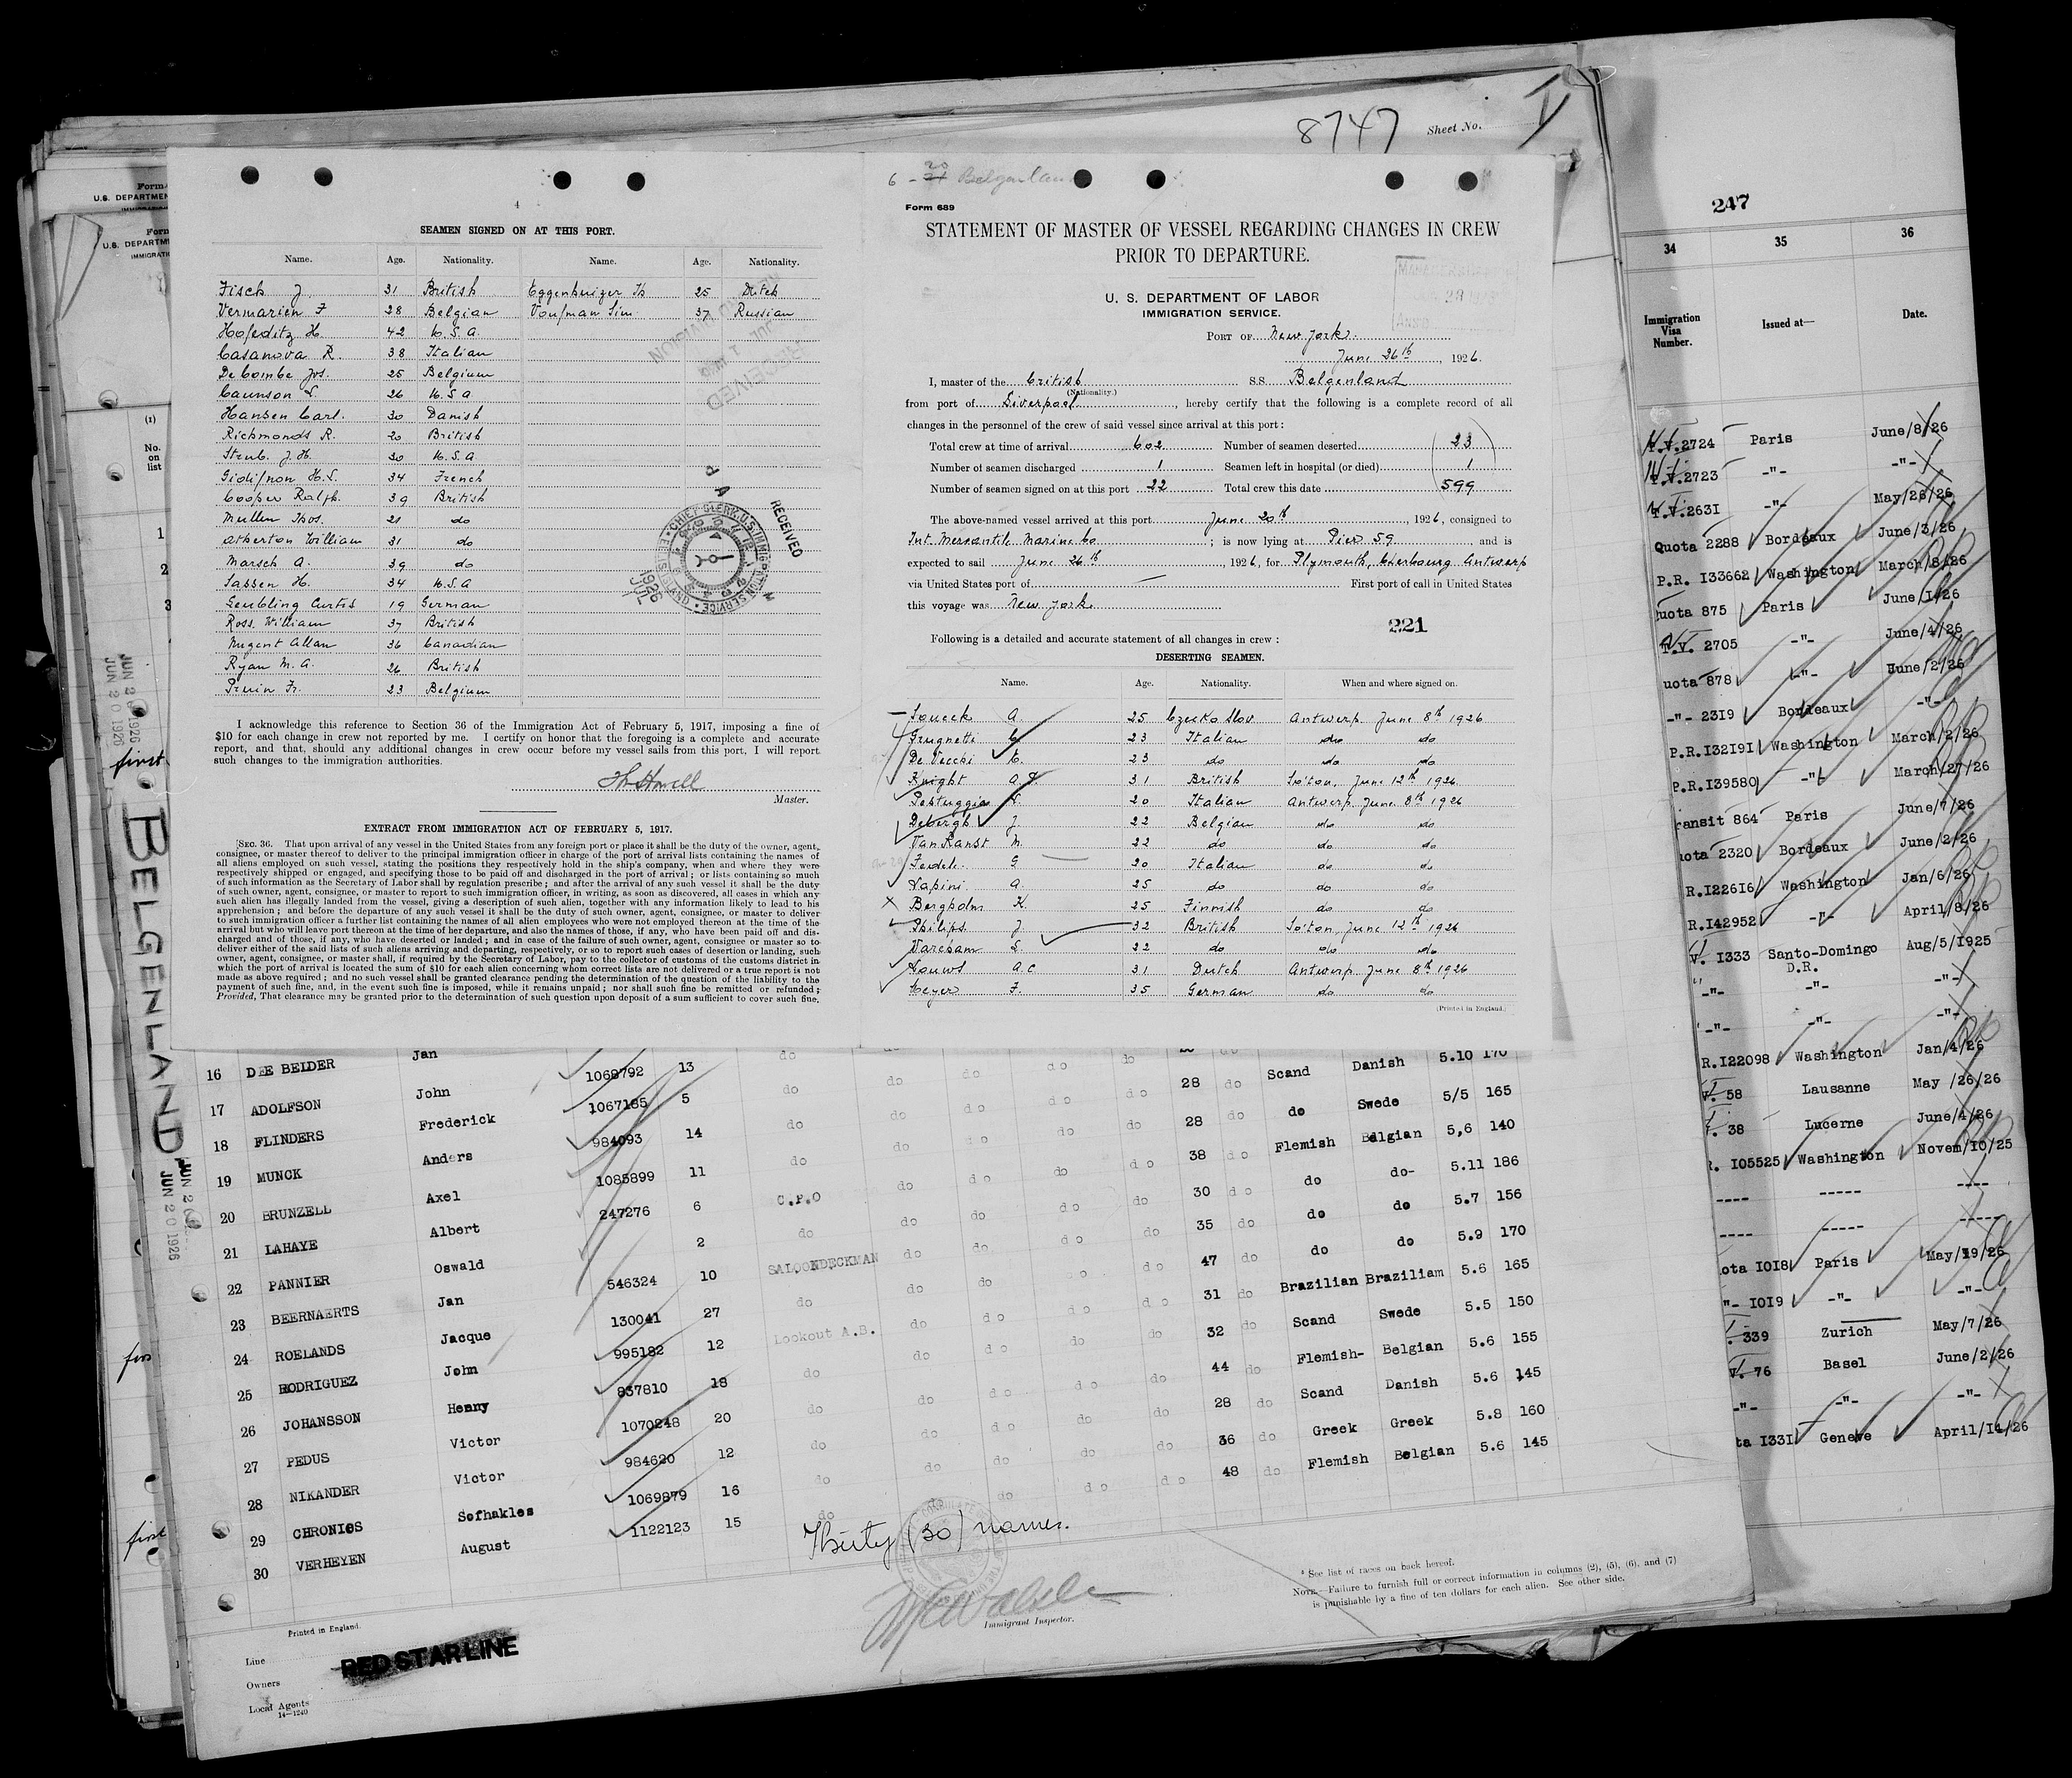 8747 Sheet No.
247
6 - 20 Belgenland
Form 689
SEAMEN SIGNED ON AT THIS PORT.
Name. Age. Nationality. Name. Age. Nationality.
Fisch J. 31 British Eggenhuizer Th 25 Dutch
Vermarien F 28 Belgian Voufman Sim. 37 Russian
Hofeditz H 42 U.S.A.
Casanova R. 38 Italian
De Combe Jos. 25 Belgium
Caunson L. 26 U.S.A
Hansen Carl. 30 Danish
Richmonds R. 20 British
Strub. J.H. 30 U.S.A.
H.L. 34 French
Cooper Ralph. 39 British
Mullen Thos. 21 do
Atherton William 31 do
Marsch A. 39 do
Sassen H. 34 U.S.A
Curtis 19 German
Ross. William 37 British
Nugent Allan 36 Canadian
Ryan M.A. 26 British
Fr. 23 Belgium
RECEIVED
CHIEF CLERK, U.S. IMMIGRATION SERVICE
ELLIS ISLAND
1926 JUL
I acknowledge this reference to Section 36 of the Immigration Act of February 5, 1917, imposing a fine of
$10 for each change in crew not reported by me. I certify on honor that the foregoing is a complete and accurate
report, and that, should any additional changes in crew occur before my vessel sails from this port, I will report
such changes to the immigration authorities.
Master.
EXTRACT FROM IMMIGRATION ACT OF FEBRUARY 5, 1917.
[SEC. 36. That upon arrival of any vessel in the United States from any foreign port or place it shall be the duty of the owner, agent,
consignee, or master thereof to deliver to the principal immigration officer in charge of the port of arrival lists containing the names of
all aliens employed on such vessel, stating the positions they respectively hold in the ship's company, when and where they were
respectively shipped or engaged, and specifying those to be paid off and discharged in the port of arrival; or lists containing so much
of such information as the Secretary of Labor shall by regulation prescribe; and after the arrival of any such vessel it shall be the duty
of such owner, agent, consignee, or master to report to such immigration officer, in writing, as soon as discovered, all cases in which any
such alien has illegally landed from the vessel, giving a description of such alien, together with any information likely to lead to his
apprehension; and before the departure of any such vessel it shall be the duty of such owner, agent, consignee, or master to deliver
to such immigration officer a further list containing the names of all alien employees who were not employed thereon at the time of the
arrival but who will leave port thereon at the time of her departure, and also the names of those, if any, who have been paid off and dis-
charged and of those, if any, who have deserted or landed; and in case of the failure of such owner, agent, consignee or master so to
deliver either of the said lists of such aliens arriving and departing, respectively, or so to report such cases of desertion or landing, such
owner, agent, consignee, or master shall, if required by the Secretary of Labor, pay to the collector of customs of the customs district in
which the port of arrival is located the sum of $10 for each alien concerning whom correct lists are not delivered or a true report is not
made as above required; and no such vessel shall be granted clearance pending the determination of the question of the liability to the
payment of such fine, and, in the event such fine is imposed, while it remains unpaid; nor shall such fine be remitted or refunded;
Provided, That clearance may be granted prior to the determination of such question upon deposit of a sum sufficient to cover such fine.
STATEMENT OF MASTER OF VESSEL REGARDING CHANGES IN CREW
PRIOR TO DEPARTURE.
U. S. DEPARTMENT OF LABOR
IMMIGRATION SERVICE.
PORT OF New York.
June 26th, 1926.
I, master of the British S.S. Belgenland
(Nationality.)
from port of Liverpool, hereby certify that the following is a complete record of all
changes in the personnel of the crew of said vessel since arrival at this port:
Total crew at time of arrival 602 Number of seamen deserted 23
Number of seamen discharged 1 Seamen left in hospital (or died) 1
Number of seamen signed on at this port 22 Total crew this date 599
The above-named vessel arrived at this port June 20th, 1926, consigned to
Int. Mercantile Marine Co; is now lying at Pier 59 and is
expected to sail June 26th, 1926, for Plymouth, Cherbourg Antwerp
via United States port of — First port of call in United States
this voyage was New York
221
Following is a detailed and accurate statement of all changes in crew:
DESERTING SEAMEN.
Name. Age. Nationality. When and where signed on.
Soucek A. 25 Czecko Slov. Antwerp. June 8th 1926
Frugnetti C. 23 Italian do do
De Vecchi C. 23 do do do
Knight A.J. 31 British So'ton, June 12th 1926
Pestuggia 20 Italian Antwerp. June 8th 1926
Debergh J. 22 Belgian do do
Van Ranst M. 22 do do do
Fedele. G 20 Italian do do
Lapini. A. 25 do do do
Bergholm K. 25 Finnish do do
Philips. J. 32 British So'ton, June 12th 1926
Vareham L. 22 do do do
Louws A.C 31 Dutch Antwerp June 8th 1926
Meyer F. 35 German do do
(Printed in England.)
34 35 36
Immigration Visa Number. Issued at— Date.
T.V.2724 Paris June/8/26
T.V.2723 -"- -"-
T.V.2631 -"- May/26/26
Quota 2288 Bordeaux June/3/26
P.R. I33662 Washington March/8/26
uota 875 Paris June/1/26
T.V. 2705 -"- June/4/26
uota 878 -"- June/2/26
-"- 2319 Bordeaux -"-
P.R.I32191 Washington March/2/26
P.R.I39580 -"- March/27/26
ransit 864 Paris June/7/26
uota 2320 Bordeaux June/2/26
R.I22616 Washington Jan/6/26
R.I42952 -"- April/8/26
V. I333 Santo-Domingo D.R. Aug/5/1925
-"- -"- -"-
-"- -"- -"-
R.I22098 Washington Jan/4/26
V. 58 Lausanne May /26/26
. 38 Lucerne June/4/26
R. I05525 Washington Novem/10/25
---- ----- ----
---- ----- -----
ota I0I8 Paris May/19/26
"- I0I9 -"- -"-
. 339 Zurich May/7/26
V. 76 Basel June/2/26
-"- -"- -"-
ta I33I Geneve April/14/26
Form
U.S. DEPARTMEN
Form
U.S. DEPARTM
IMMIGRATI
(1)
No. on list
1
2
3
first
JUN 20 1926
BELGENLAND
JUN 20 1926
first
16 DEE BEIDER Jan 1068792 13
17 ADOLFSON John 1067185 5
18 FLINDERS Frederick 984093 14
19 MUNCK Anders 1085899 11
20 BRUNZELL Axel 247276 6 C.P.O
21 LAHAYE Albert 2 do
22 PANNIER Oswald 546324 10 SALOONDECKMAN
23 BEERNAERTS Jan 130041 27 do
24 ROELANDS Jacque 995182 12 Lookout A.B.
25 RODRIGUEZ John 837810 18 do
26 JOHANSSON Henny 1070248 20 do
27 PEDUS Victor 984620 12 do
28 NIKANDER Victor 1069879 16 do
29 CHRONIOS Sofhakles 1122123 15 do
30 VERHEYEN August
Scand Danish 5.10 170
28 do do Swede 5/5 165
28 do Flemish Belgian 5,6 140
38 do do do- 5.11 186
30 do do do 5.7 156
35 do do do 5.9 170
47 do Brazilian Braziliam 5.6 165
31 do Scand Swede 5.5 150
32 do Flemish- Belgian 5.6 155
44 do Scand Danish 5.6 145
28 do Greek Greek 5.8 160
36 do Flemish Belgian 5.6 145
48 do
Thirty (30) names.
Immigrant Inspector.
* See list of races on back hereof.
NOTE.—Failure to furnish full or correct information in columns (2), (5), (6), and (7)
is punishable by a fine of ten dollars for each alien. See other side.
Printed in England.
Line RED STAR LINE
Owners
Local Agents
14—1240